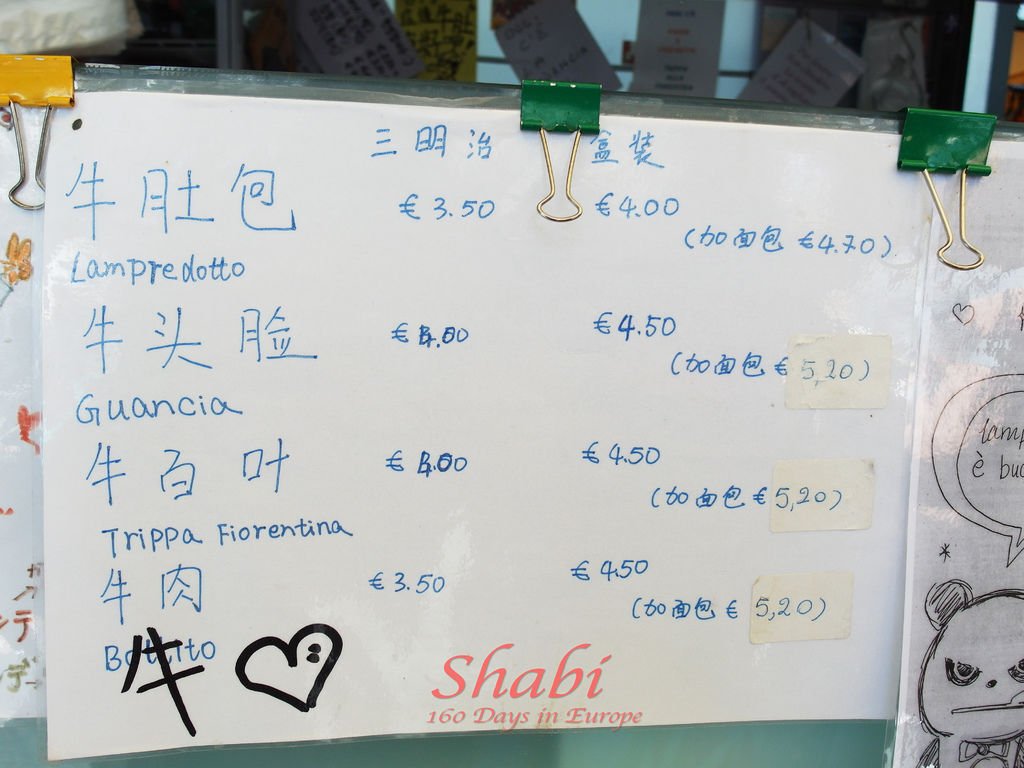 三明治 盒装
牛肚包 €3.50 €4.00
(加面包 €4.70)
Lampredotto
牛头脸 €4.00 €4.50
(加面包 € 5,20)
Guancia
牛百叶 €4.00 €4.50
(加面包 € 5,20)
Trippa Fiorentina
牛肉 €3.50 €4.50
(加面包 € 5,20)
Bollito
牛
Shabi
160 Days in Europe
lamp
è buo